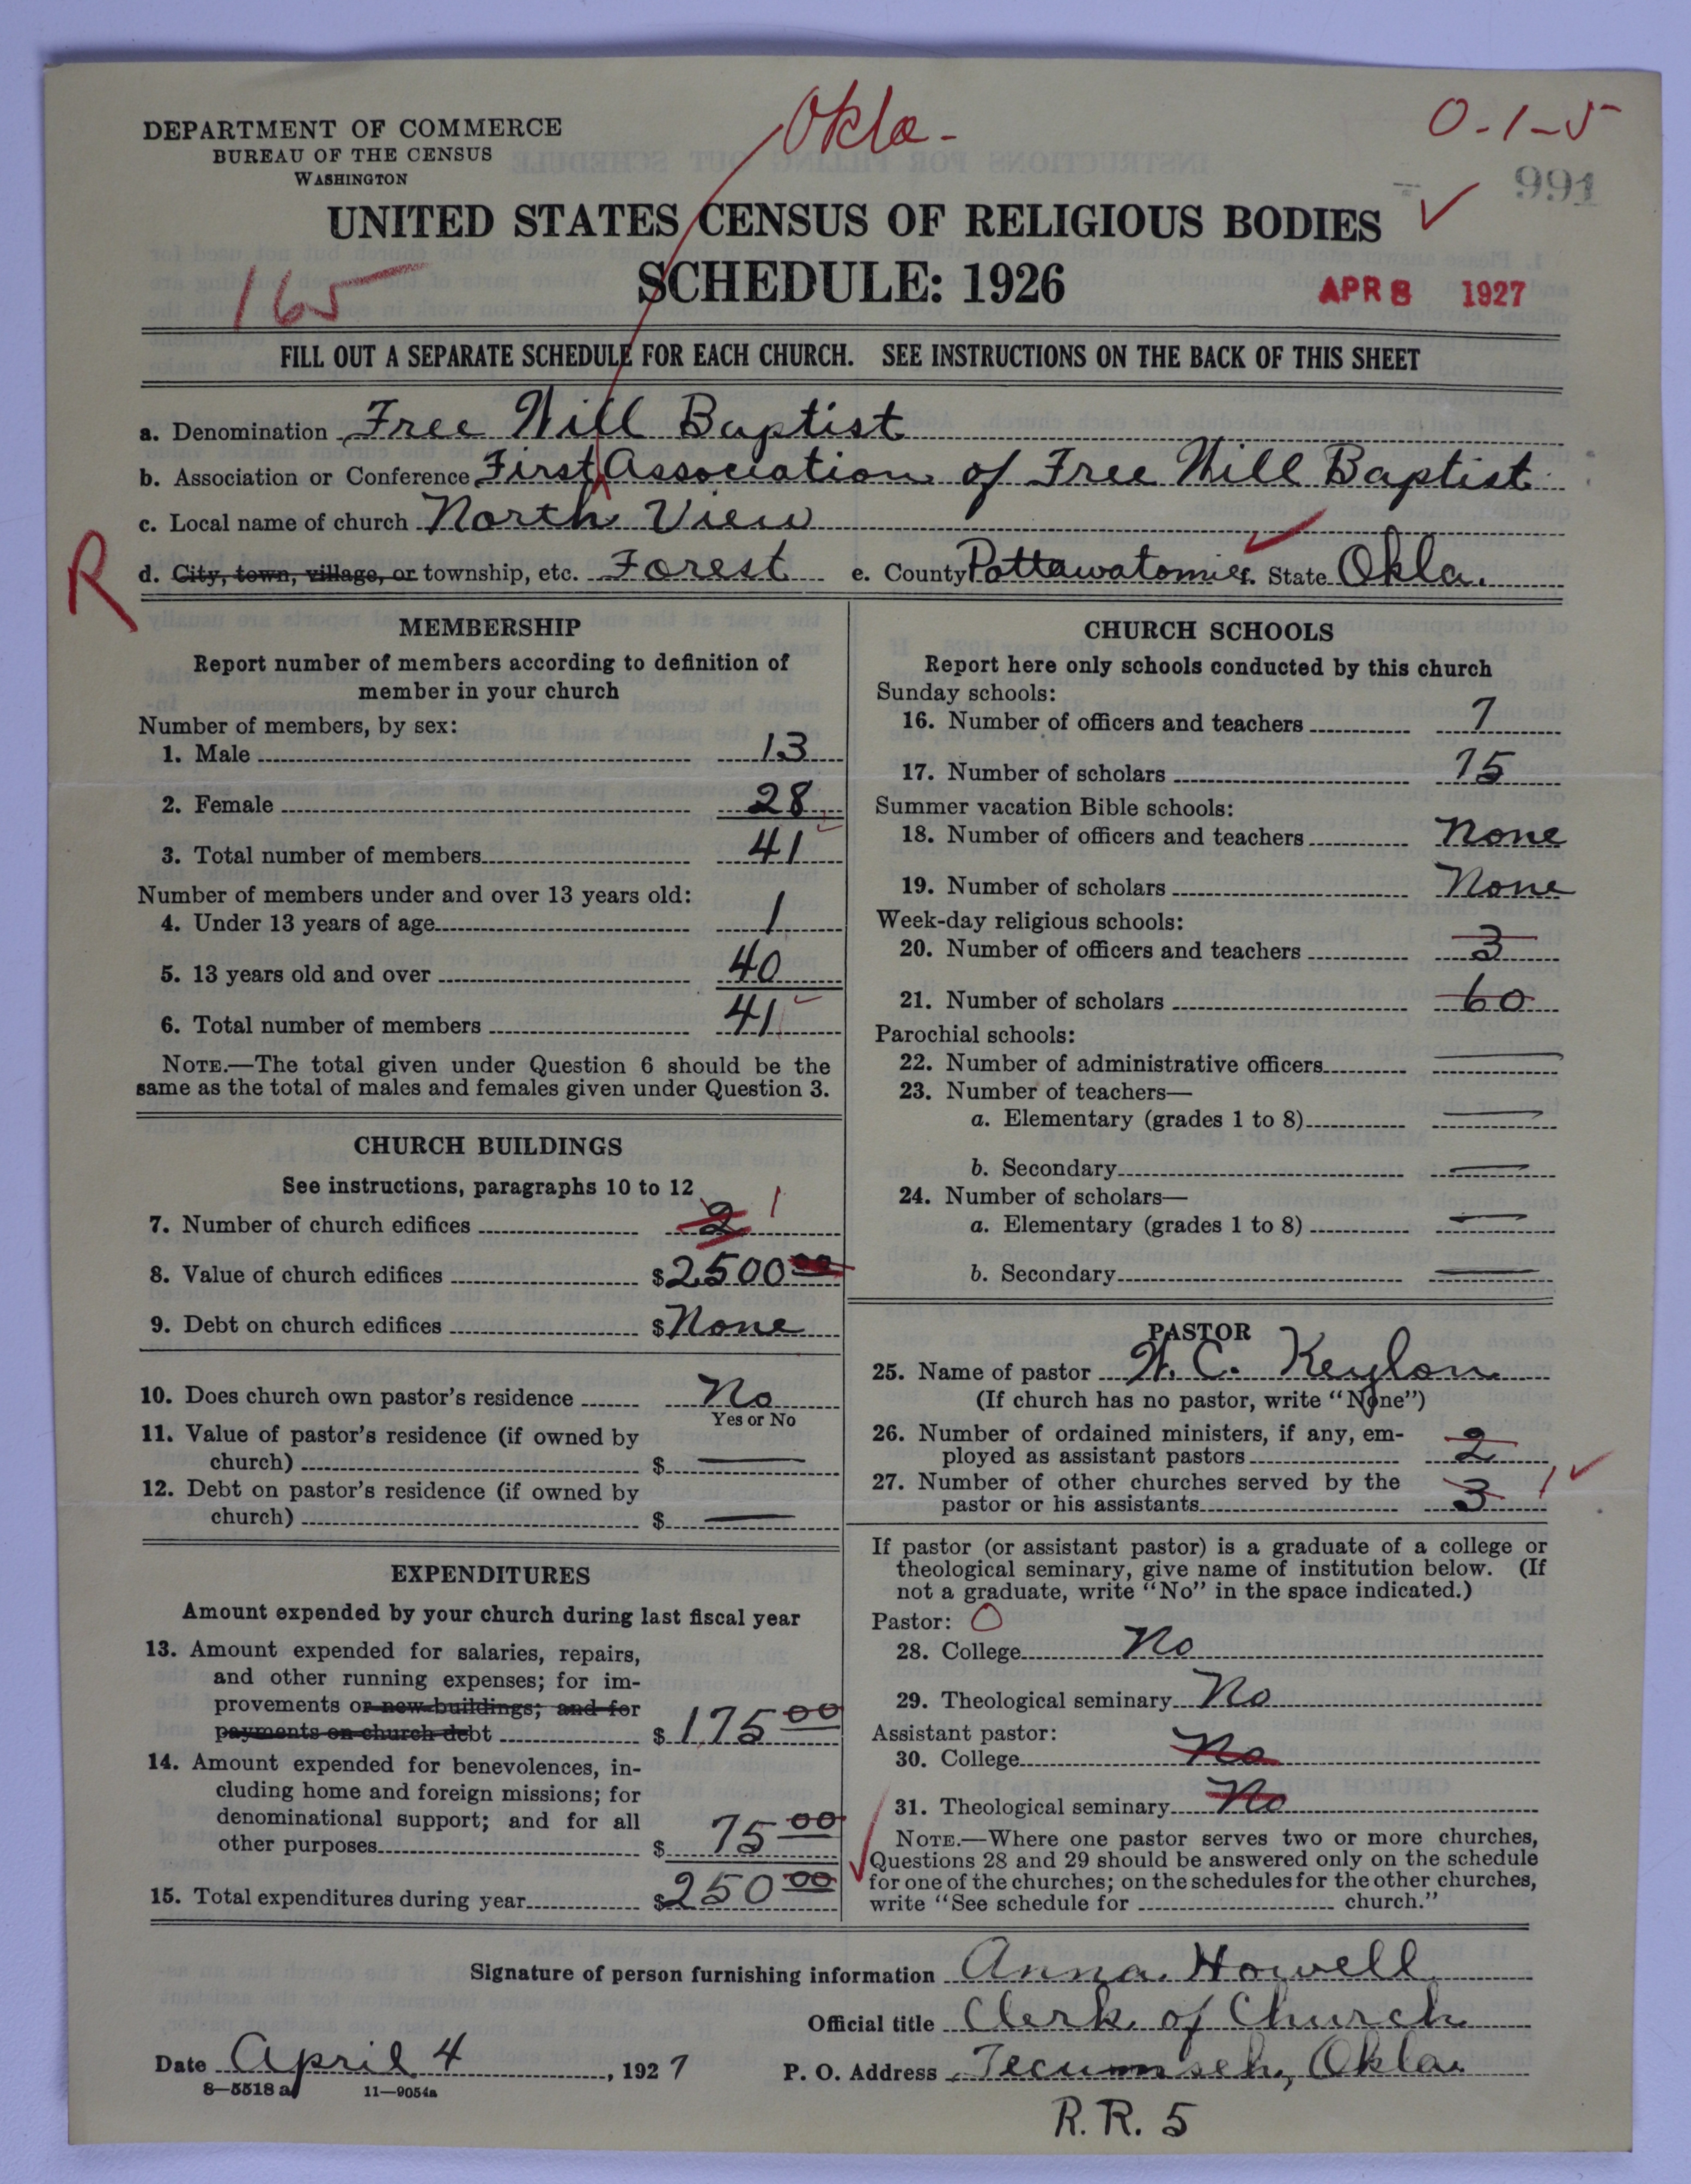 Okla-
0-1-5
DEPARTMENT OF COMMERCE
BUREAU OF THE CENSUS
WASHINGTON
991
UNITED STATES CENSUS OF RELIGIOUS BODIES
SCHEDULE: 1926
165
APR 8 1927
FILL OUT A SEPARATE SCHEDULE FOR EACH CHURCH. SEE INSTRUCTIONS ON THE BACK OF THIS SHEET
a. Denomination Free Will Baptist
b. Association or Conference First Association of Free Will Baptist
c. Local name of church North View
R
d. City, town, village, or township, etc. Forest e. County Pottawatomie f. State Okla.
MEMBERSHIP
Report number of members according to definition of
member in your church
Number of members, by sex:
1. Male 13
2. Female 28
3. Total number of members 41
Number of members under and over 13 years old:
4. Under 13 years of age 1
5. 13 years old and over 40
6. Total number of members 41
NOTE.—The total given under Question 6 should be the
same as the total of males and females given under Question 3.
CHURCH BUILDINGS
See instructions, paragraphs 10 to 12
7. Number of church edifices 2 1
8. Value of church edifices $2500 00
9. Debt on church edifices $None
10. Does church own pastor's residence No
Yes or No
11. Value of pastor's residence (if owned by
church) $
12. Debt on pastor's residence (if owned by
church) $
EXPENDITURES
Amount expended by your church during last fiscal year
13. Amount expended for salaries, repairs,
and other running expenses; for im-
provements or new buildings; and for
payments on church debt $175 00
14. Amount expended for benevolences, in-
cluding home and foreign missions; for
denominational support; and for all
other purposes $ 75 00
15. Total expenditures during year $250 00
CHURCH SCHOOLS
Report here only schools conducted by this church
Sunday schools:
16. Number of officers and teachers 7
17. Number of scholars 75
Summer vacation Bible schools:
18. Number of officers and teachers None
19. Number of scholars None
Week-day religious schools:
20. Number of officers and teachers 3
21. Number of scholars 60
Parochial schools:
22. Number of administrative officers
23. Number of teachers—
a. Elementary (grades 1 to 8)
b. Secondary
24. Number of scholars—
a. Elementary (grades 1 to 8)
b. Secondary
PASTOR
25. Name of pastor W. C. Keylon
(If church has no pastor, write "None")
26. Number of ordained ministers, if any, em-
ployed as assistant pastors 2
27. Number of other churches served by the
pastor or his assistants 3 1
If pastor (or assistant pastor) is a graduate of a college or
theological seminary, give name of institution below. (If
not a graduate, write "No" in the space indicated.)
Pastor: O
28. College No
29. Theological seminary No
Assistant pastor:
30. College No
31. Theological seminary No
NOTE.—Where one pastor serves two or more churches,
Questions 28 and 29 should be answered only on the schedule
for one of the churches; on the schedules for the other churches,
write "See schedule for church."
Signature of person furnishing information Anna Howell
Official title Clerk of Church
Date April 4, 1927 P. O. Address Tecumseh, Okla.
8—5518 a 11—9054a
R. R. 5